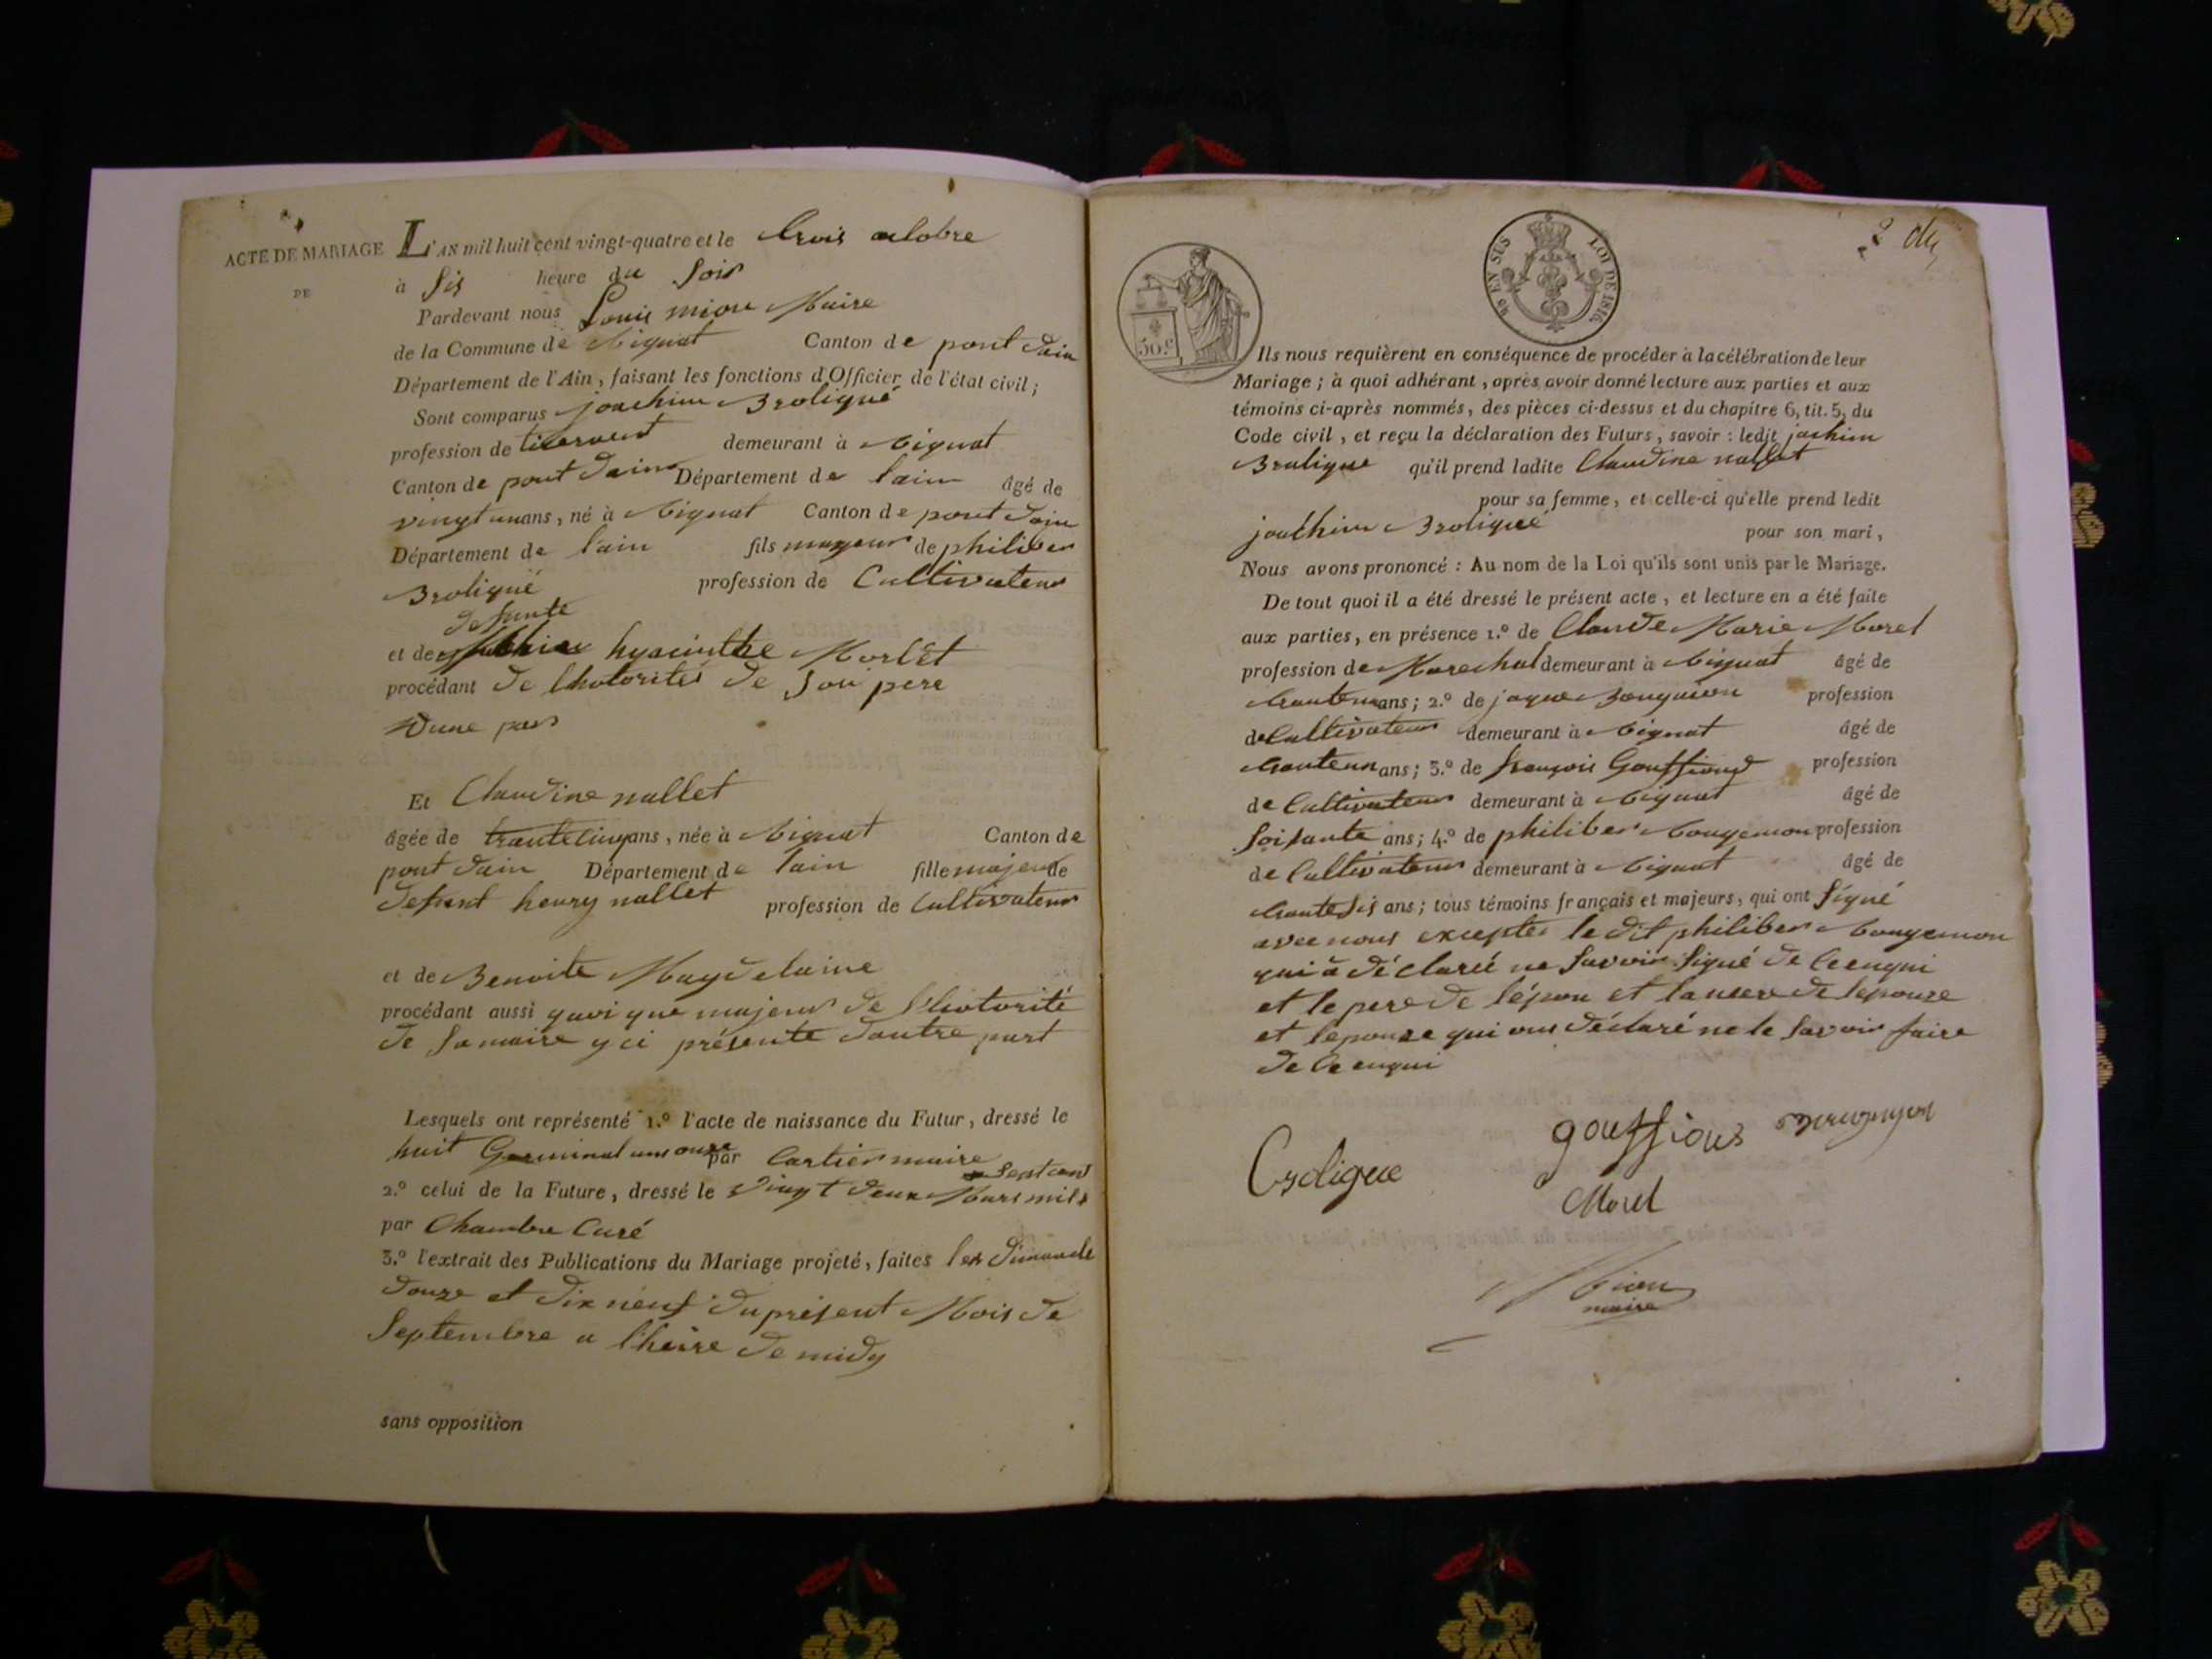 ACTE DE MARIAGE
DE
L'AN mil huit cent vingt-quatre et le trois octobre
à sis heure du soir
Pardevant nous Louis mion Maire
de la Commune de Cignat Canton de pont dain
Département de l'Ain, faisant les fonctions d'Officier de l'état civil;
Sont comparus joachim Broliqué
profession de demeurant à Cignat
Canton de pont dain Département de lain âgé de
vingt unans, né à Cignat Canton de pont dain
Département de lain fils mageur de philiber
Broliqué profession de Cultivateur
defunte
et de hyacinthe Morlet
procédant de lhotorités de son pere
Dune par
Et Claudine nallet
âgée de trante cinqans, née à Cignat Canton de
pont dain Département de lain fille majeur de
defunt henry nallet profession de Cultivateur
et de Benoite Magdelaine
procédant aussi quoi que majeur de l'hotorité
de sa maire y ci présente dautre part
Lesquels ont représenté 1.º l'acte de naissance du Futur, dressé le
huit Germinal ans onze par Cartier maire
2.º celui de la Future, dressé le vingt deux Mars mils septcent
par Chambre Curé
3.º l'extrait des Publications du Mariage projeté, faites les dimanche
douze et dix neuf du présent Mois de
Septembre a l'heire de midy
sans opposition
2 du
EN SUS LOI DE 1816
50.c
Ils nous requièrent en conséquence de procéder à la célébration de leur
Mariage; à quoi adhérant, après avoir donné lecture aux parties et aux
témoins ci-après nommés, des pièces ci-dessus et du chapitre 6, tit. 5, du
Code civil, et reçu la déclaration des Futurs, savoir: ledit joachim
Brolique qu'il prend ladite Claudine nallet
pour sa femme, et celle-ci qu'elle prend ledit
joachim Broliqué pour son mari,
Nous avons prononcé: Au nom de la Loi qu'ils sont unis par le Mariage.
De tout quoi il a été dressé le présent acte, et lecture en a été faite
aux parties, en présence 1.º de Claude Marie Morel
profession de Marechal demeurant à Cignat âgé de
trante ans; 2.º de jaque Bouguion profession
de Cultivateur demeurant à Cignat âgé de
trante un ans; 3.º de françois Gouffiond profession
de Cultivateur demeurant à Cignat âgé de
soisante ans; 4.º de philiber Cougemon profession
de Cultivateur demeurant à Cignat âgé de
trante sis ans; tous témoins français et majeurs, qui ont signé
avec nous excepter le dit philiber Cougemon
qui à déclaré ne savoir signé de ce enqui
et le pere de lépou et la mere de lepouze
et lepouze qui ons déclaré ne le savoir faire
de ce enqui
gouffions
Brolique
Morel
Mion
maire